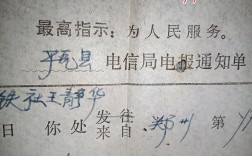 最高指示：为人民服务。
县
电信局电报通知单
铁社王静华
日你处发往来自郑州第